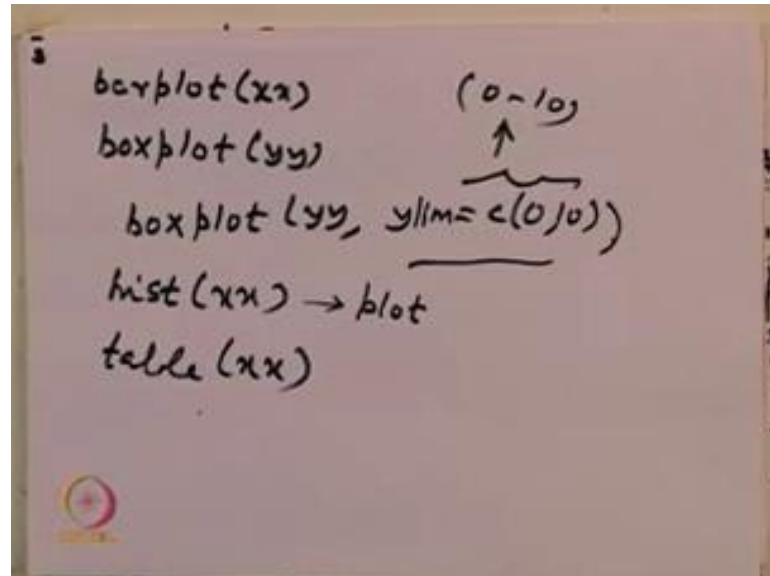 barplot(xx)
(0-10)
boxplot(yy)
boxplot(yy, ylim=c(0,10))
hist(xx) → plot
table(xx)